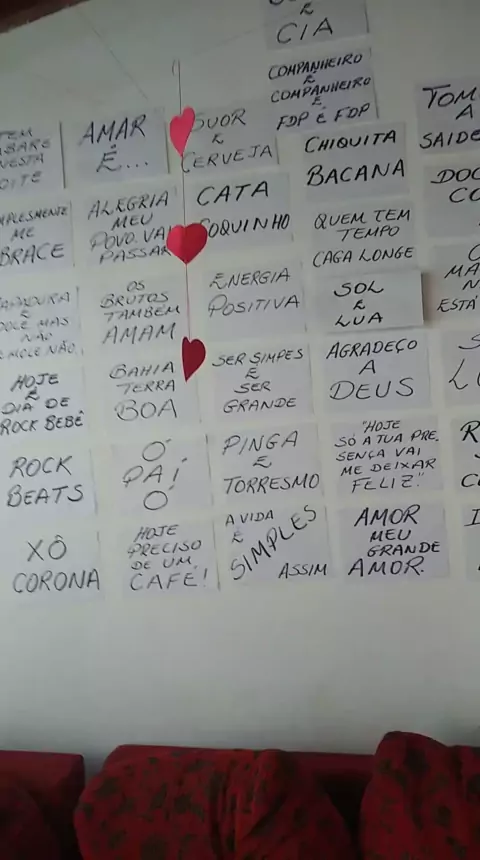 E
CIA
COMPANHEIRO
É
COMPANHEIRO
E
FDP É FDP
TEM
NESTA
AMAR
É...
E
CERVEJA
CHIQUITA
BACANA
TOM
A
SAIDE
ME
ALEGRIA
MEU
POVO. VAI
PASSAR
CATA
QUEM TEM
TEMPO
CAGA LONGE
DOC
CO
É
DOCE MAS
NÃO
MOLE NÃO
OS
BRUTOS
TAMBÉM
AMAM
ENERGIA
POSITIVA
SOL
E
LUA
MA
N
ESTÁ
HOJE
É
DIA DE
ROCK BEBÊ
BAHIA
TERRA
BOA
SER SIMPES
É
SER
GRANDE
AGRADEÇO
A
DEUS
ROCK
BEATS
Ó
PAÍ
Ó
PINGA
E
TORRESMO
"HOJE
SÓ A TUA PRE.
SENÇA VAI
ME DEIXAR
FELIZ."
XÔ
CORONA
HOJE
PRECISO
DE UM
CAFÉ!
A VIDA
É
SIMPLES
ASSIM
AMOR
MEU
GRANDE
AMOR.